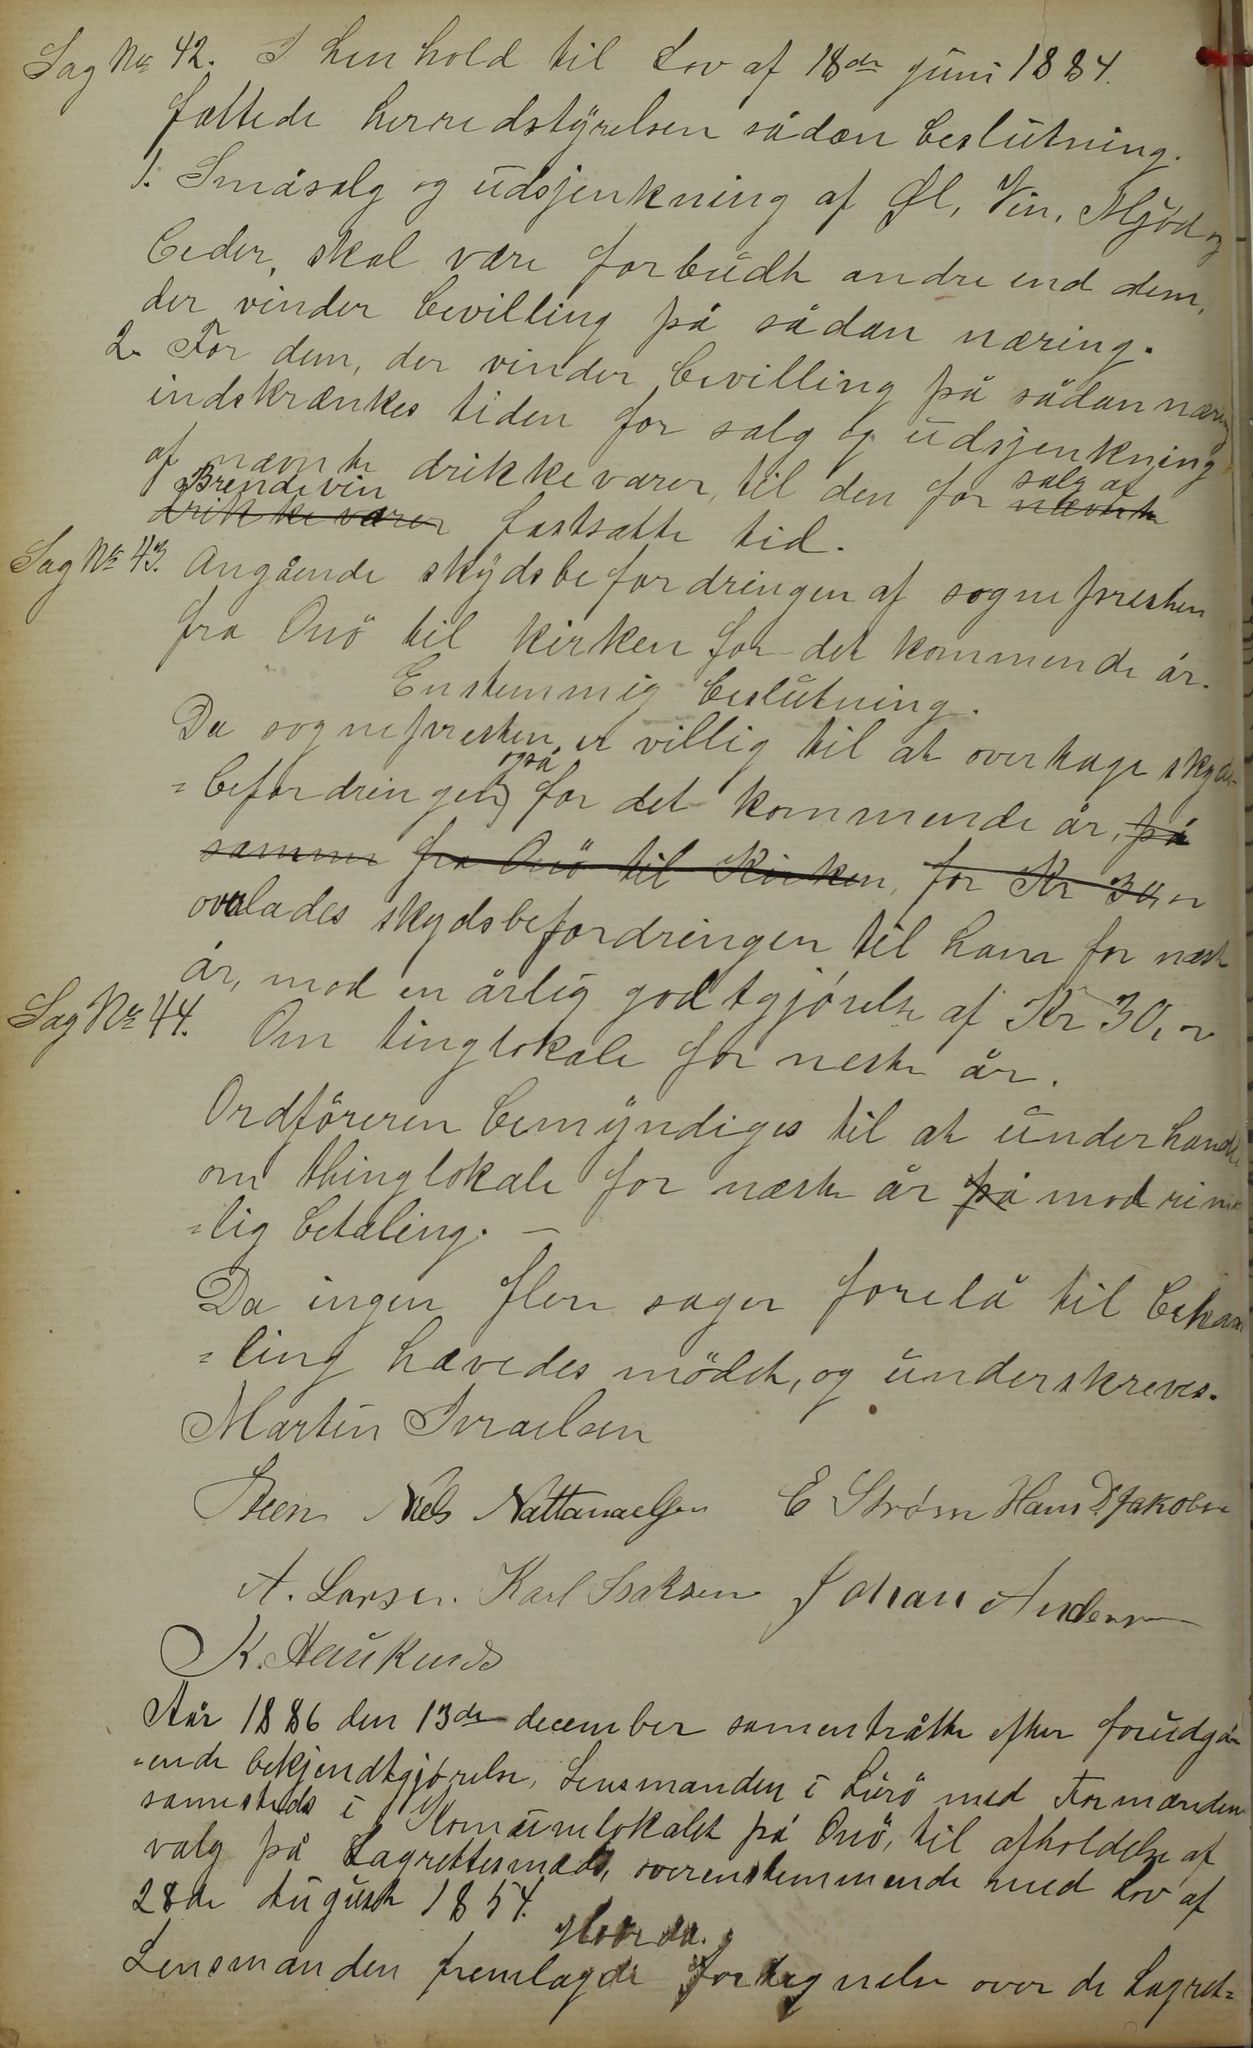 Sag No 42. I henhold til Lov af 18de juni 1884.
fattede herredstyrelsen sådan beslutning.
1. Småsalg og udsjenkning af Øl, Vin, Mjød og
Ceder, skal være forbudt andre end dem,
der vinder bevilling på sådan næring.
2. For dem, der vinder bevilling på sådan næring
indskrænkes tiden for salg og udsjenkning
af nævnte drikkevarer, til den for salg af nævnte
Brendevin drikkevarer fastsatte tid.
Sag No 43. Angående skydsbefordringen af sognepresten
fra Onö til kirken for det kommende år.
Enstemmig beslutning.
Da sognepresten er villig til at overtage skyds
=befordringen også for det kommende år, på
samme fra Onö til Kirken, for Kr 30,
overlades skydsbefordringen til ham for næste
år, mod en årlig godtgjörelse af Kr 30,
Sag No 44. Om tinglokale for neste år.
Ordföreren bemyndiges til at underhandle
om thinglokale for næste år på mod rime
=lig betaling. —
Da ingen flere sager forelå til behan
=ling hævedes mödet, og underskreves.
Martin Israelsen
Steen Niels Nattanaelsen E Strøm Hans D Jakobsen
A. Larsen. Karl Isaksen Johan Andersen
K. Haukunds
Aar 1886 den 13de december samentrådte efter forudgå
=ende bekjendtgjørelse, Lensmanden i Lurö med Formænden
samesteds i Komunelokalet på Onö, til afholdelse af
valg på Lagrettesmæd, overenstemmende med Lov af
28de August 1854.
Lensmanden fremlagde fortegnelse over de Lagret=